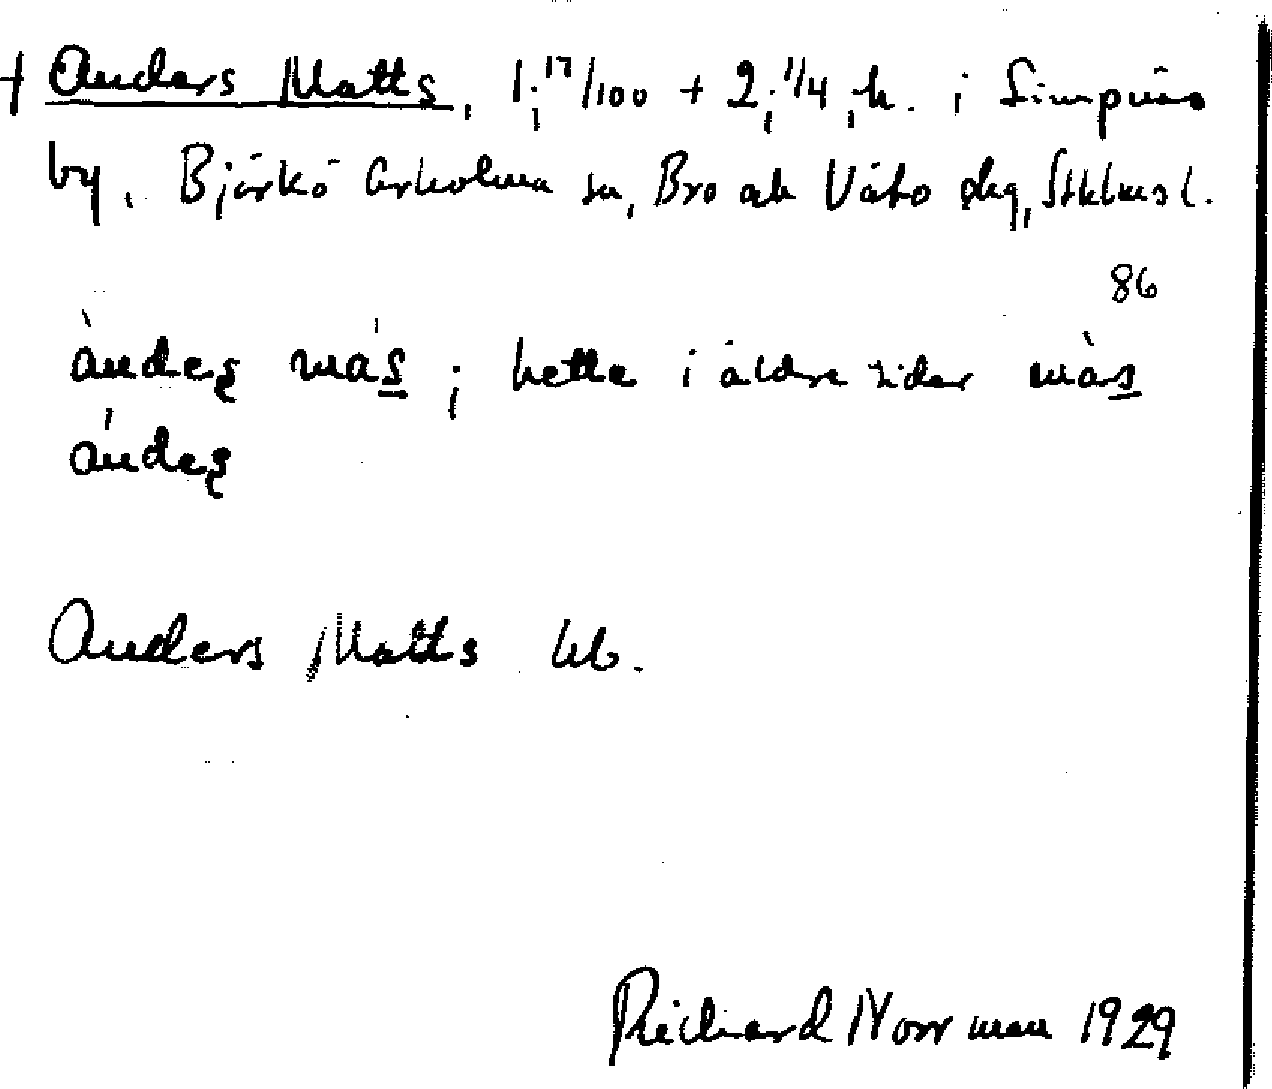 + Anders Matts, 1:17/100 + 2:1/4, h. i Simpnäs
by, Björkö Arholma sn, Bro och Vätö skg, Sthlms l.
86
àndeȿ màs̲; hette i äldre tider màs̲
ándeȿ
Anders Matts kb.
Richard Norrman 1929